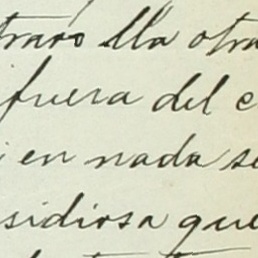 traro lla otra
fuera del c
i en nada se
sidiosa que